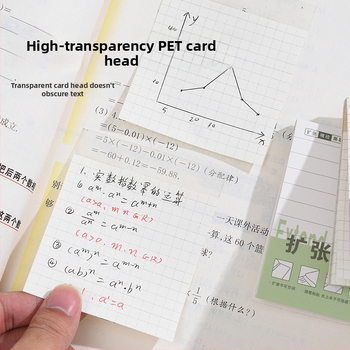 High-transparency PET card
head
Transparent card head doesn't
obscure text
y
40
10
5 20 10
x
成立.
(3) 4.
(5-0.01)×(-12)
=5×(-12)-0.01×(-12)(分配律)
=-60+0.12=-59.88.
把后两个数
别
够
1. 实数指数幂的运算
① aᵐ·aⁿ=aᵐ⁺ⁿ
(a>0, m.n∈R)
② aᵐ/aⁿ=aᵐ⁻ⁿ
(a>0, m.n∈R)
③ (aᵐ)ⁿ=aᵐ⁻ⁿ
④ (ab)ⁿ=aⁿ·bⁿ
a¹=a
一天课外活动
算,这 60 个篮
球?
1/5 (根据什么?)
Extend
扩张